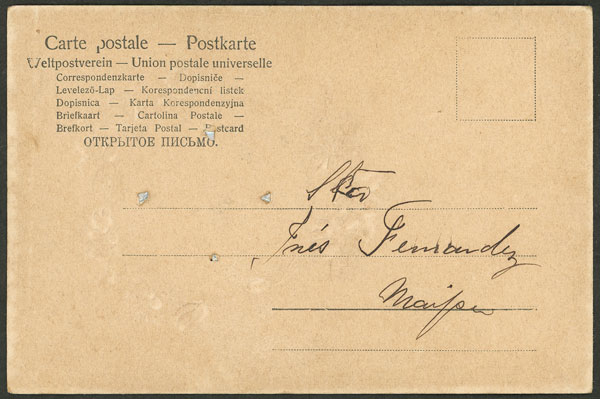 Carte postale — Postkarte
Weltpostverein — Union postale universelle
Correspondenzkarte — Dopisniče —
Levelező-Lap — Korespondencni listek
Dopisnica — Karta Korespondenzyjna
Briefkaart — Cartolina Postale —
Brefkort — Tarjeta Postal — Postcard
ОТКРЫТОЕ ПИСЬМО.
Inés Fernandez
Maipu